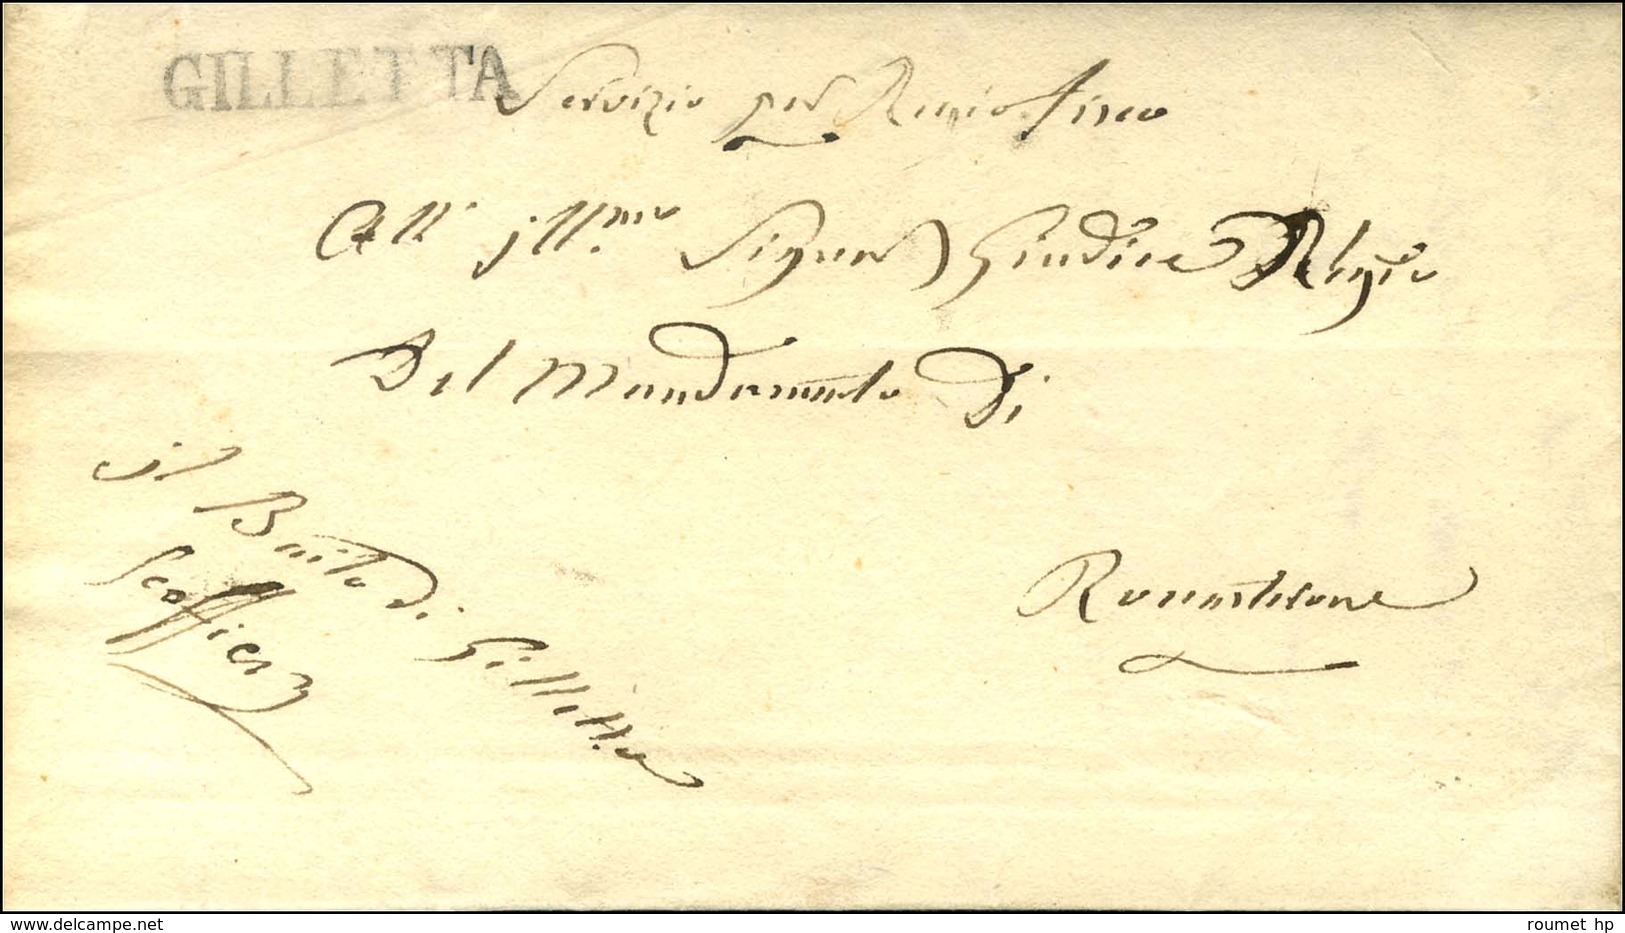 GILLETTA
Servizio per Regio fisco
All' jll.mo Signor Giudice Regio
Del Mandamento Di
Roccasterone
il Bailo di Gilletta
Scoffier
www.delcampe.net
roumet hp